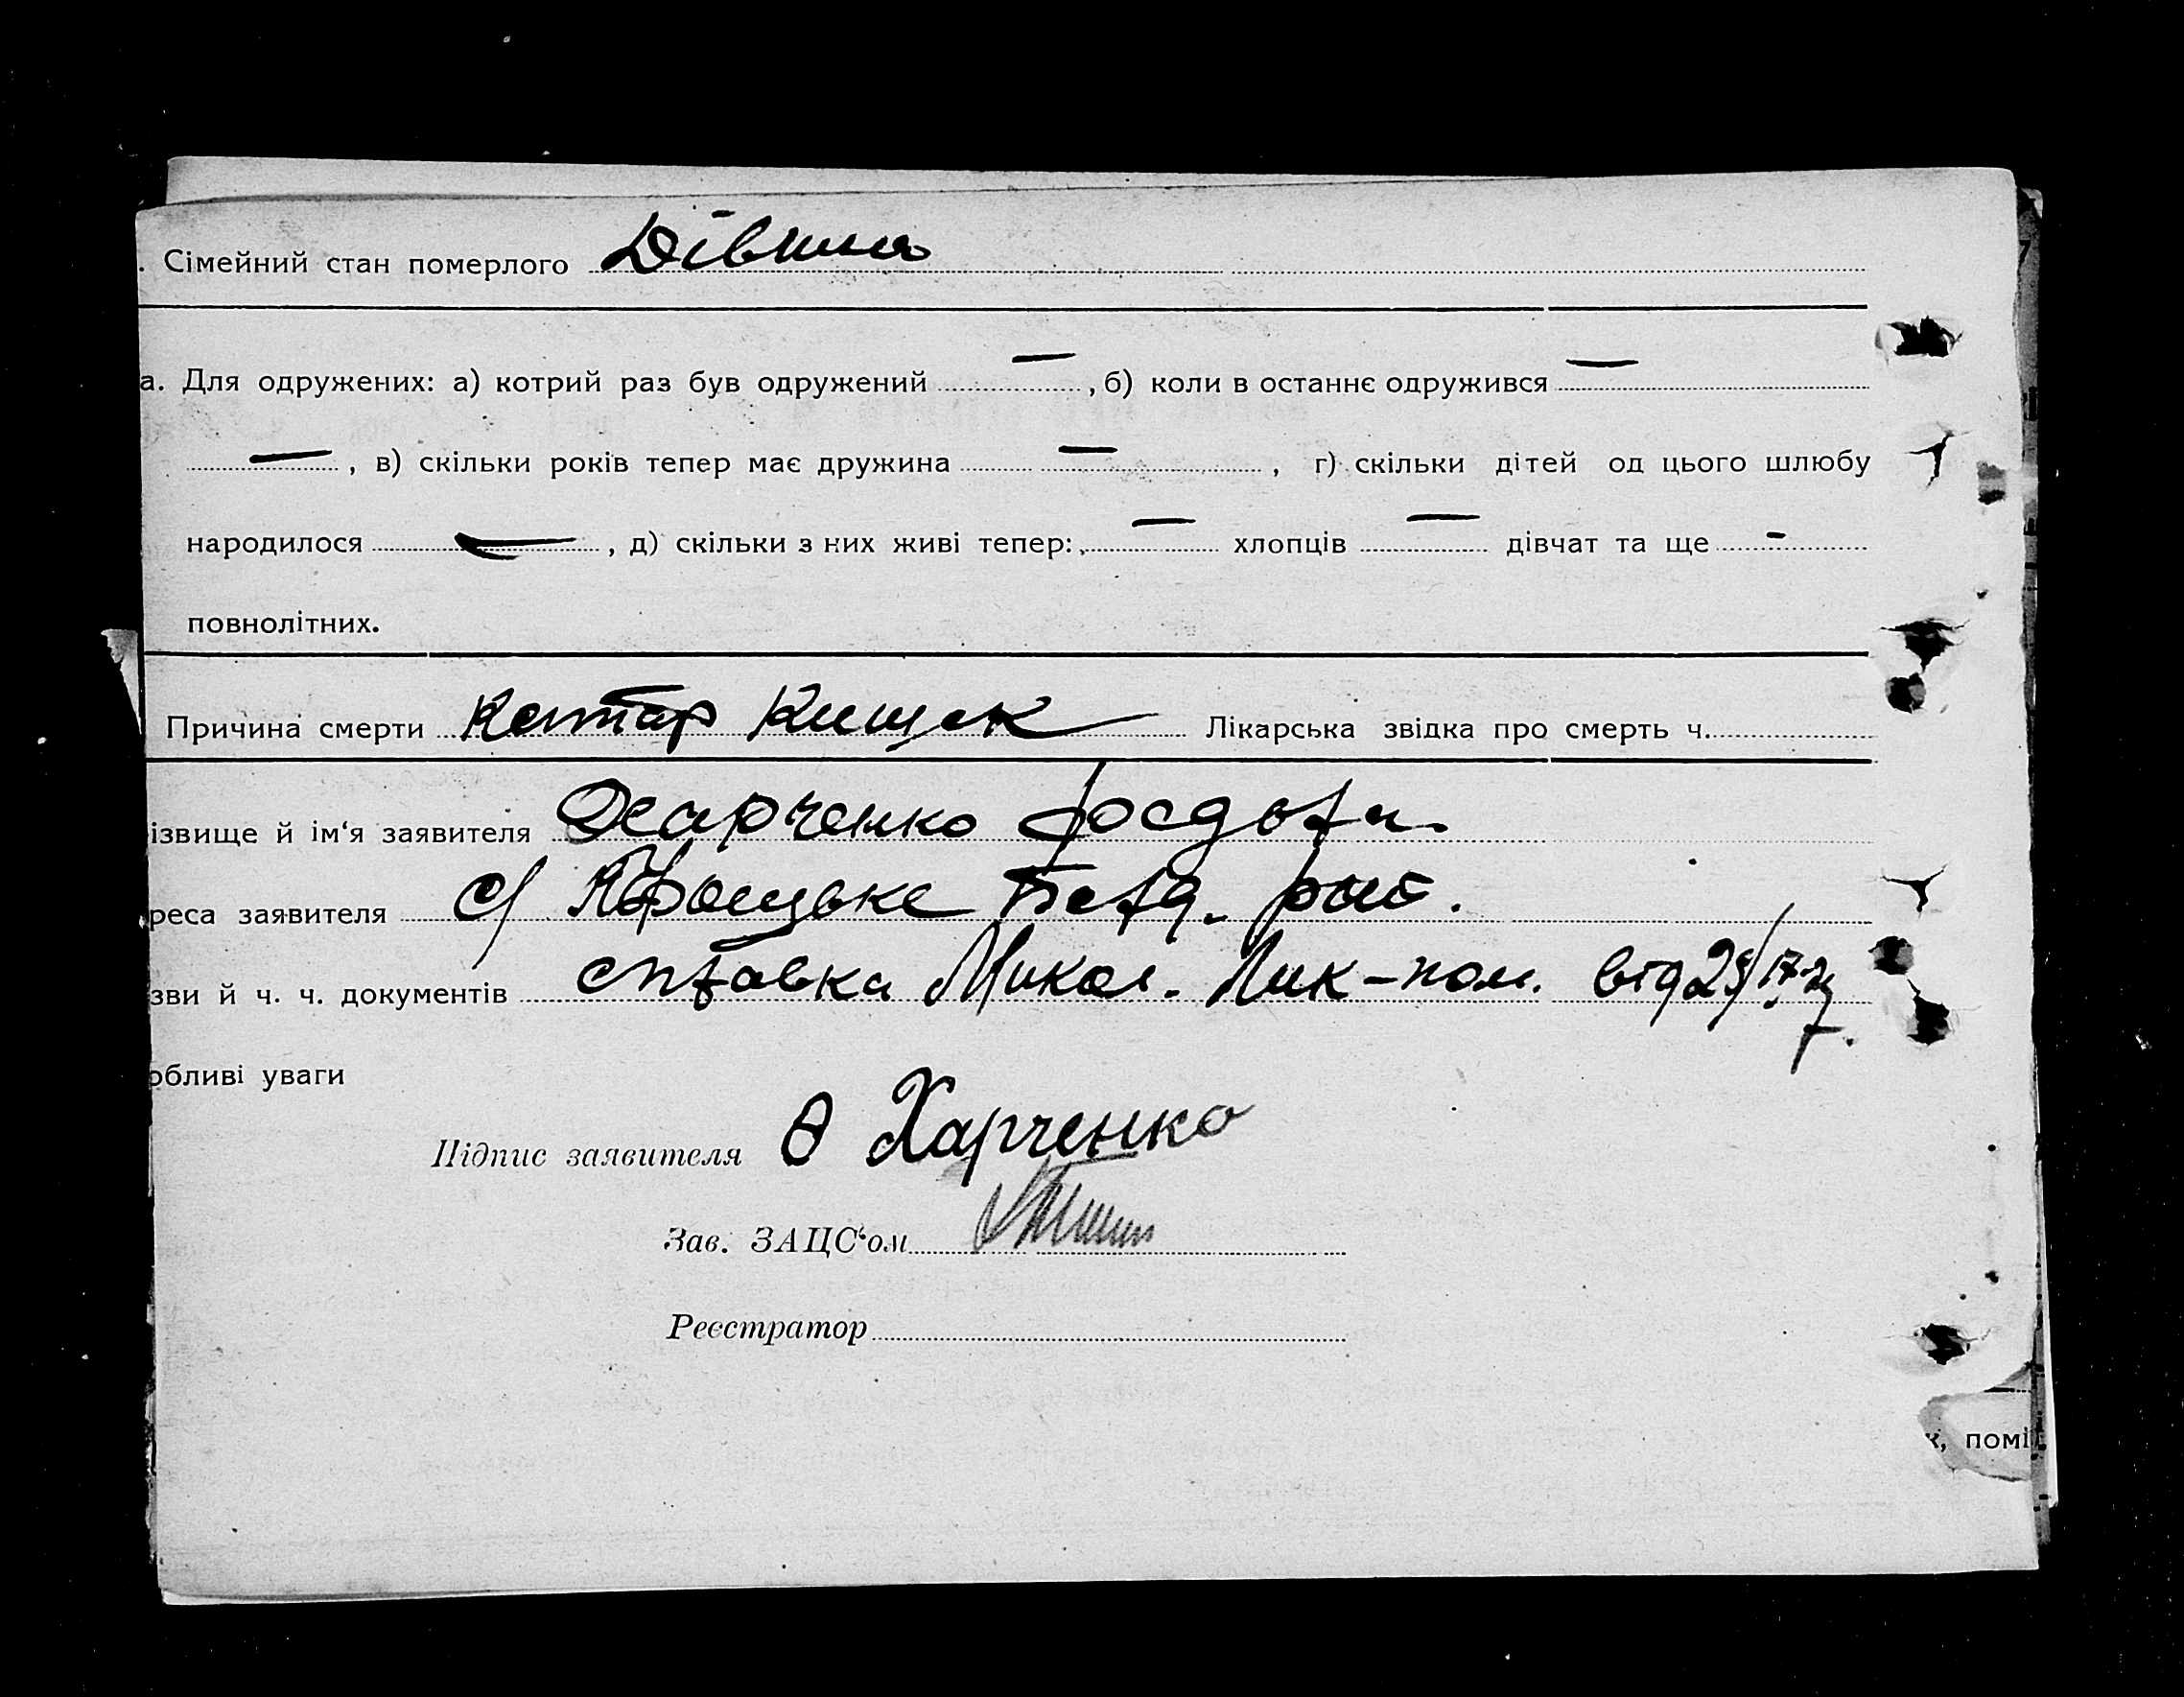 . Сімейний стан померлого Дівиця
а. Для одружених: а) котрий раз був одружений — , б) коли в останнє одружився —
— , в) скільки років тепер має дружина — , г) скільки дітей од цього шлюбу
народилося — , д) скільки з них живі тепер: — хлопців — дівчат та ще -
повнолітних.
Причина смерти Катар Кишек Лікарська звідка про смерть ч.
ізвище й ім‘я заявителя Харченко Фосдота
реса заявителя с/ Бетд. рай.
зви й ч. ч. документів справка Микол. Лик-пом. від
обливі уваги
Підпис заявителя Ѳ Харченко
Зав. ЗАЦС‘ом
Реєстратор
, помі